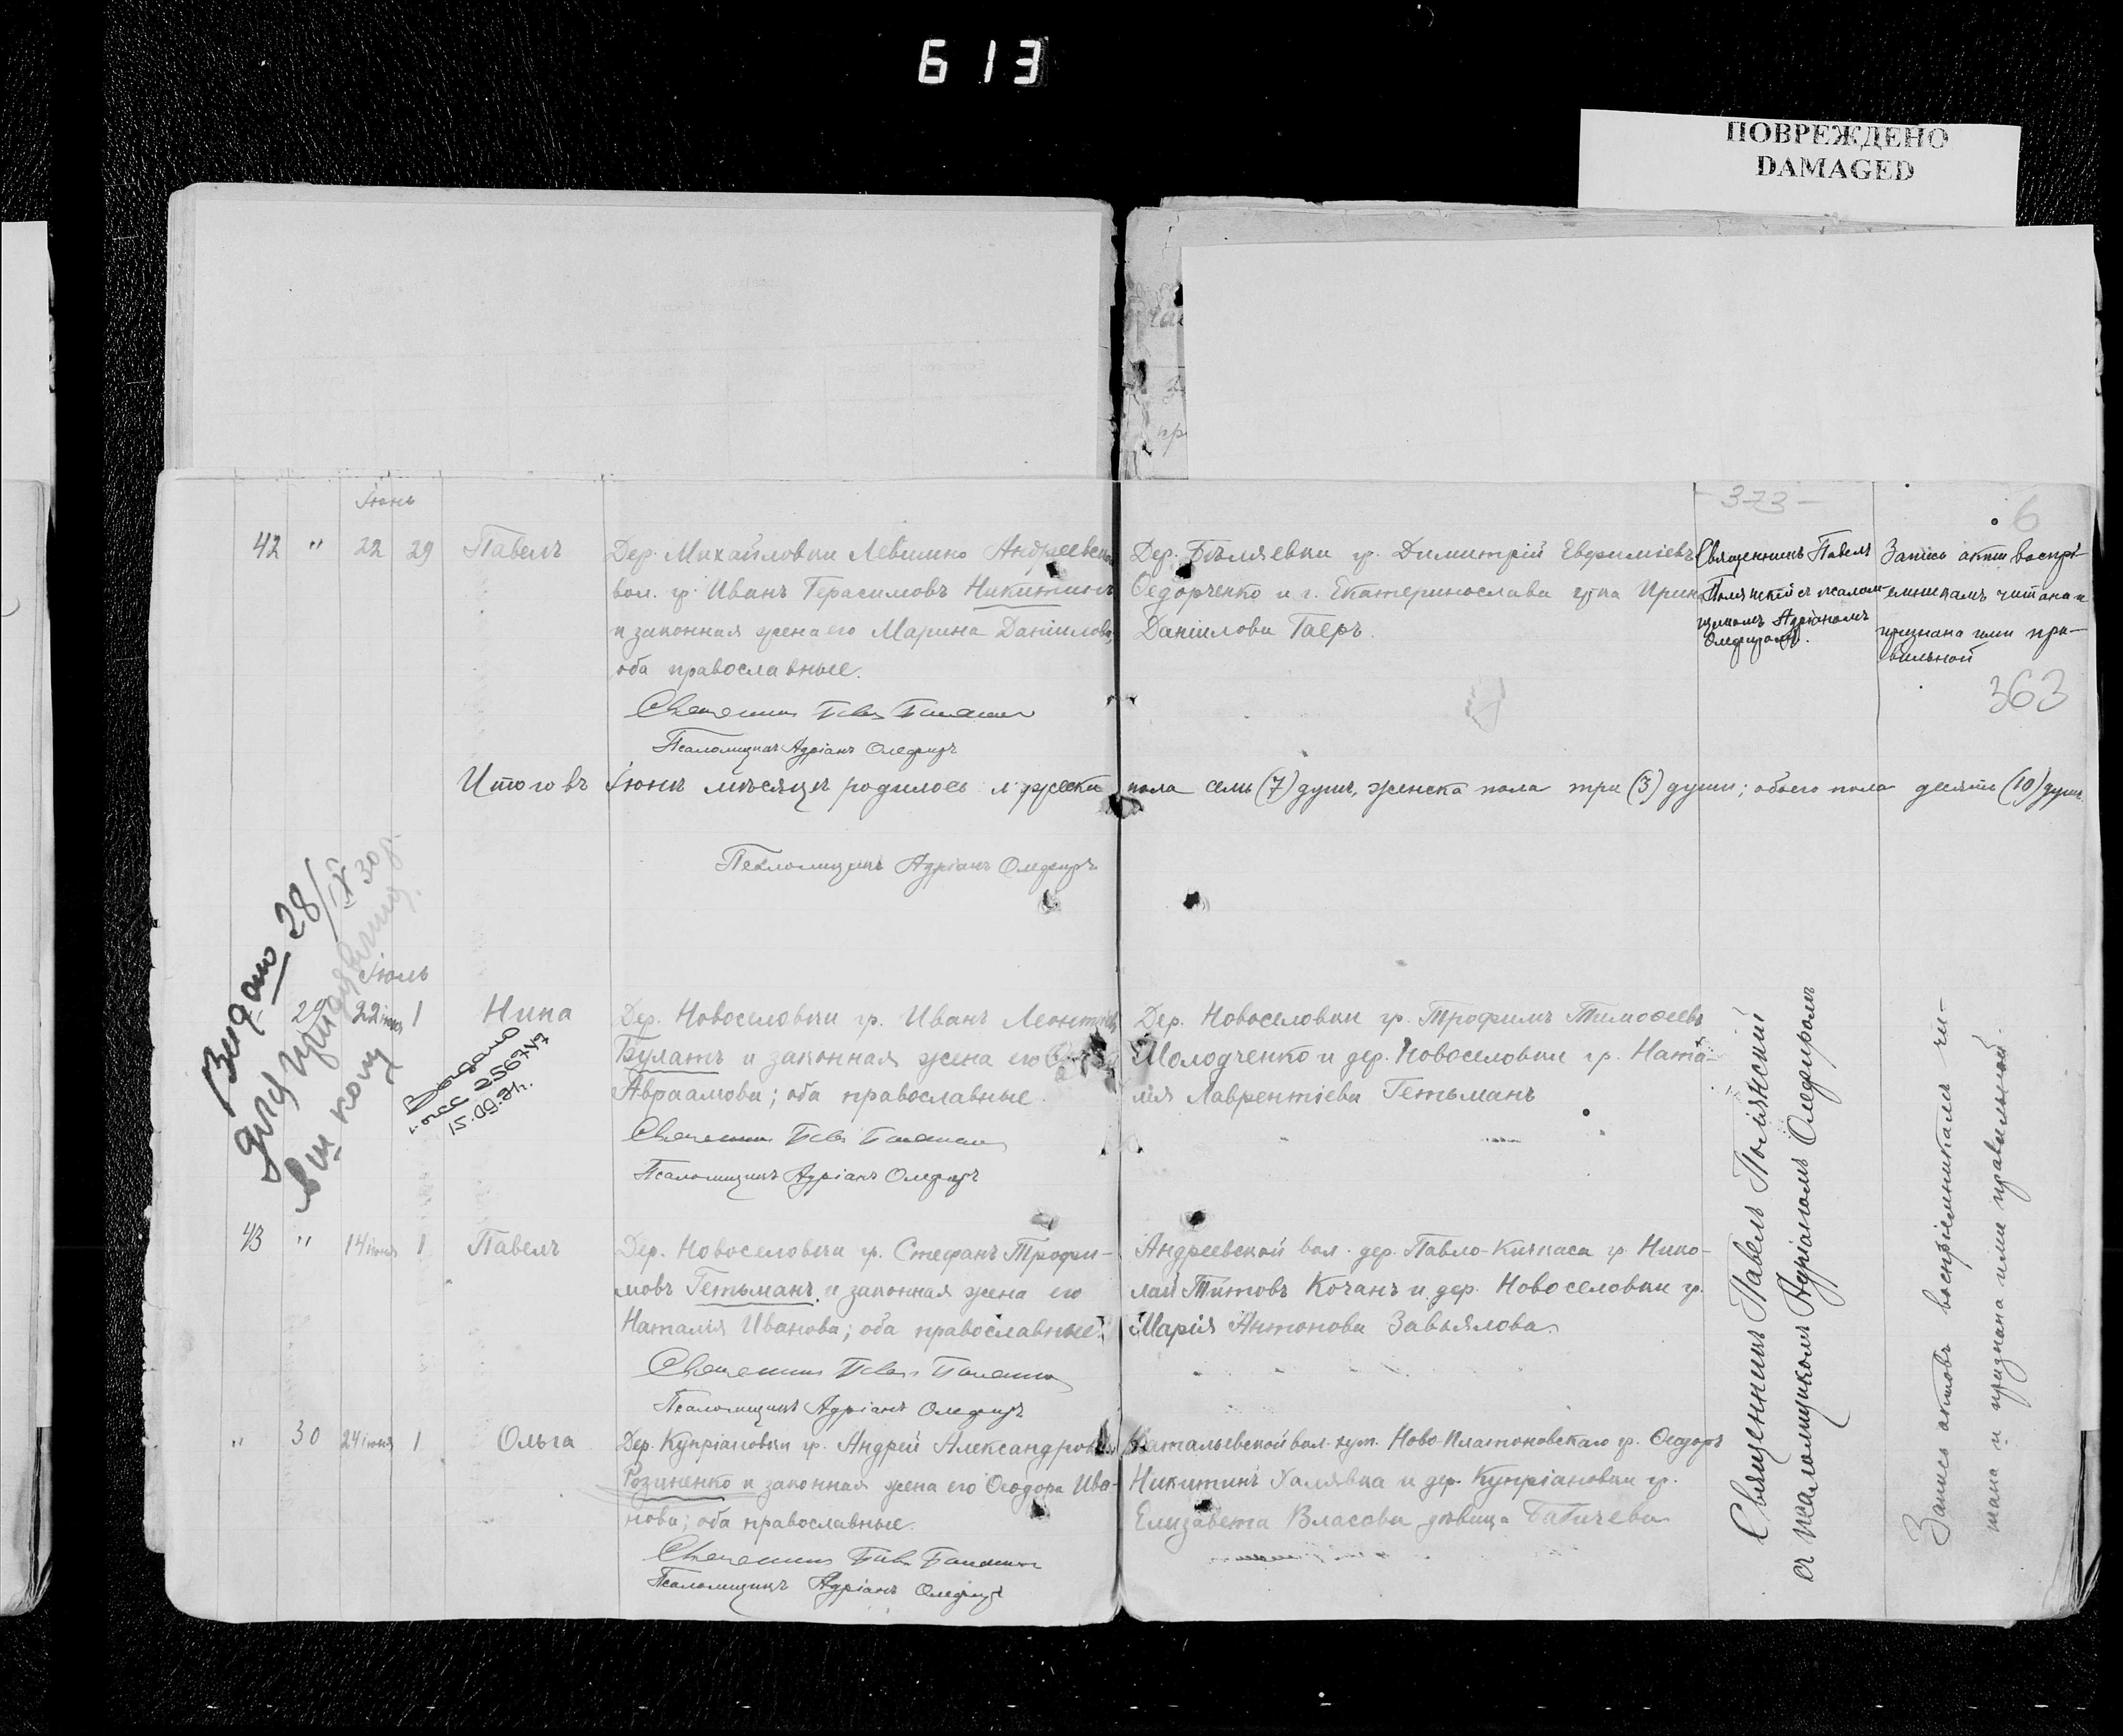 613
ПОВРЕЖДЕНО
DAMAGED
- 373 -
6
Іюнь
42 " 22 29 Павелъ
Дер. Михайловки Левшино Андреевской
вол. гр. Иванъ Герасимовъ Никитинъ
и законная жена его Марина Даніилова,
оба православные.
Псаломщикъ Адріанъ Олефиръ
Дер. Бѣляевки гр. Димитрій Евфиміевъ
Ѳедорченко и г. Екатеринослава гр-ка Ирина
Даніилова Гаеръ.
Священникъ Павелъ
Полянскій съ псалом-
щикомъ Адріаномъ
Олефиромъ.
Запись акта воспрі-
емникамъ читана и
признана ими пра-
вильной
363
Итого въ Іюнѣ мѣсяцѣ родилось мужеска пола семь (7) душъ, женска пола три (3) души; обоего пола десять (10) душъ.
Псаломщикъ Адріанъ Олефиръ
Выдано 28/IX 30 г.
для
в ш кому
Іюль
29 22 іюня 1 Нина
Выдано
256747
15.09.
Дер. Новоселовки гр. Иванъ Леонтіевъ
Булатъ и законная жена его
Авраамова; оба православные.
Псаломщикъ Адріанъ Олефиръ
Дер. Новоселовки гр. Трофимъ Тимоѳеевъ
Молодченко и дер. Новоселовки гр. Ната-
лія Лаврентіева Гетьманъ
43 " 14 іюня 1 Павелъ
Дер. Новоселовки гр. Стефанъ Трофи-
мовъ Гетьманъ и законная жена его
Наталія Иванова; оба православные.
Псаломщикъ Адріанъ Олефиръ
Андреевской вол. дер. Павло-Кичкаса гр. Нико-
лай Титовъ Кочанъ и дер. Новоселовки гр.
Марія Антонова Завьялова.
" 30 24 іюня 1 Ольга
Дер. Купріановки гр. Андрей Александровъ
Розиненко и законная жена его Ѳеодора Ива-
нова; оба православные.
Псаломщикъ Адріанъ Олефиръ
Натальевской вол. хут. Ново-Платоновскаго гр. Ѳеодоръ
Никитинъ Халявка и дер. Купріановки гр.
Елизавета Власова дѣвица Бабичева
Священникъ Павелъ Полянскій
съ псаломщикомъ Адріаномъ Олефиромъ
Запись актовъ воспріемникамъ чи-
тана и признана ими правильной.